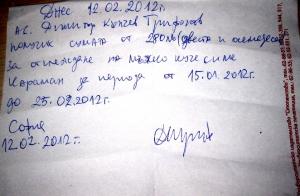 Днес 12.02.2012г.
Ас. Димитър Кънчев Трифонов
получих сумата от 280лв (двеста и осемдесет
за отглеждане на мъжко куче с име
Караман за периода от 15.01.2012г.
до 25.02.2012г.
София
12.02.2012г.